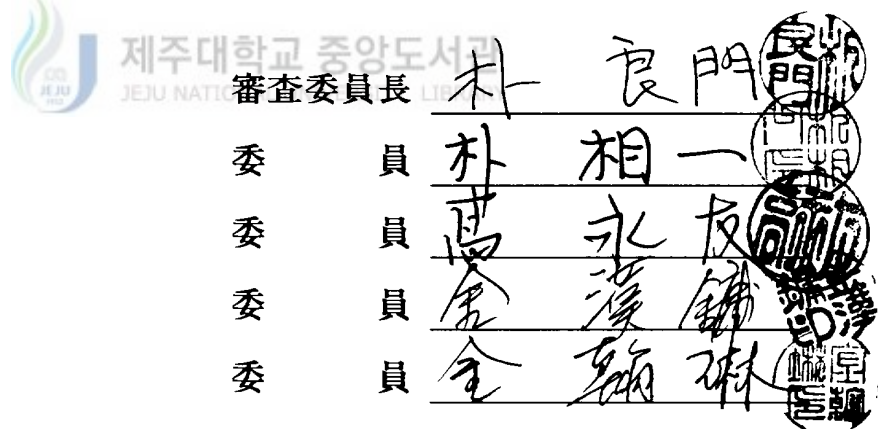 제주대학교 중앙도서관
JEJU NATIONAL UNIVERSITY LIBRARY
審査委員長 朴 良 門
委 員 朴 相 一
委 員 高 永 友
委 員 金 漢 鏞
委 員 金 翰 琳